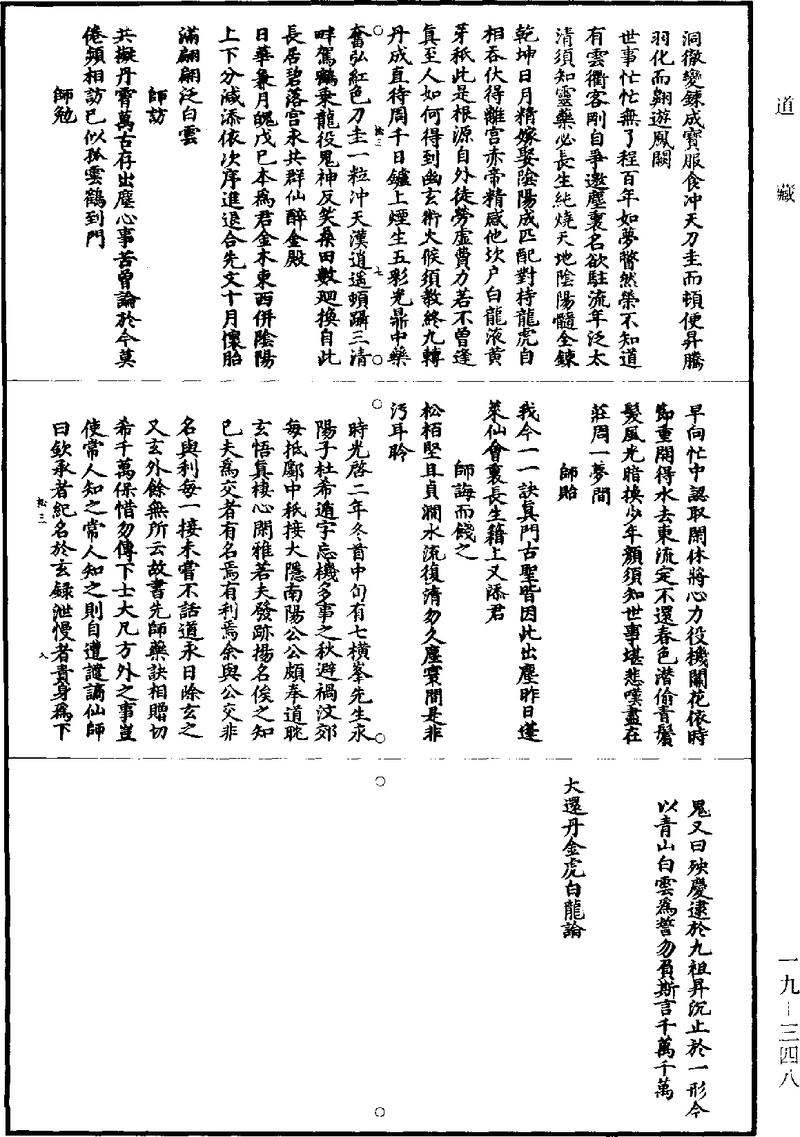 道藏
洞徹變鍊成寶服食冲天刀圭而頓便昇騰
羽化而翺遊鳳闕
世事忙忙無了程百年如夢瞥然榮不知道
有雲衢客剛自爭邀塵裏名欲駐流年泛太
清須知靈藥必長生純燒天地陰陽髓全鍊
乾坤日月精嫁娶陰陽成匹配對持龍虎自
相吞伏得離宮赤帝精感他坎户白龍液黃
芽秖此是根源自外徒勞虛費力若不曾逢
真至人如何得到幽玄術火候須教終九轉
丹成直待周千日鑪上煙生五彩光鼎中藥
奮弘紅色刀圭一粒冲天漢逍遥頓躡三清
畔駕鶴乘龍役鬼神反笑桑田數廻換自此
長居碧落宮永共群仙醉金殿
日華兼月魄戊己本為君金木東西併陰陽
上下分減添依次序進退合先文十月懷胎
滿翩翩泛白雲
師訪
共擬丹霄萬古存出塵心事苦曾論於今莫
倦頻相訪已似孤雲鶴到門
師勉
早向忙中認取閑休將心力役機關花依時
節重開得水去東流定不還春色潛偷青鬢
髮風光暗換少年顏須知世事堪悲嘆盡在
莊周一夢間
師貽
我今一一訣真門古聖皆因此出塵昨日蓬
萊仙會裏長生籍上又添君
師誨而餞之
松栢堅且貞澗水流復清勿久塵寰間是非
污耳聆
時光啓二年冬首中旬有七橫峯先生永
陽子杜希遁字忘機多事之秋避禍汶郊
每抵鄽中秖接大隱南陽公公頗奉道耽
玄悟真棲心閑雅若夫發跡揚名俟之知
己夫為交者有名焉有利焉余與公交非
名與利每一接未嘗不話道永日除玄之
又玄外餘無所云故書先師藥訣相贈切
希千萬保惜勿傳下士大凡方外之事豈
使常人知之常人知之則自遭譴謫仙師
曰欽承者紀名於玄録泄慢者責身為下
鬼又曰殃慶逮於九祖昇沉止於一形今
以青山白雲為誓勿負斯言千萬千萬
大還丹金虎白龍論
一九－三四八